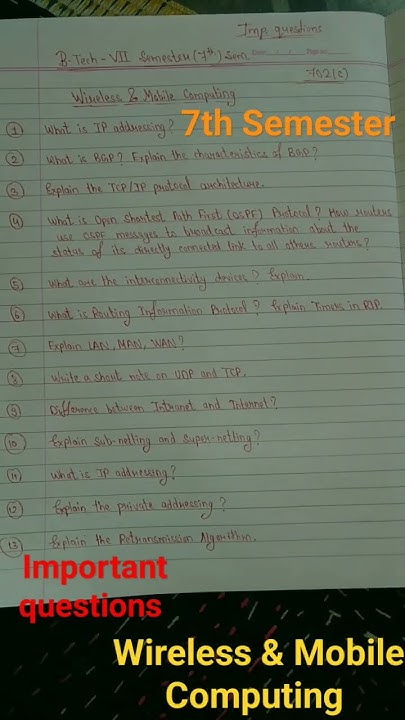 Imp questions
B-Tech - VII Semester (7th) Sem
702(C)
Wireless & Mobile Computing
7th Semester
① What is IP addressing?
② What is BGP? Explain the characteristics of BGP?
③ Explain the TCP/IP protocol architecture.
④ What is Open Shortest Path First (OSPF) Protocol? How routers
use OSPF messages to broadcast information about the
status of its directly connected link to all others routers?
⑤ What are the interconnectivity devices? Explain.
⑥ What is Routing Information Protocol? Explain Timers in RIP.
⑦ Explain LAN, MAN, WAN?
⑧ Write a short note on UDP and TCP.
⑨ Difference between Intranet and Internet?
⑩ Explain sub-netting and super-netting?
⑪ What is IP addressing?
⑫ Explain the private addressing?
⑬ Explain the Retransmission Algorithm.
Important
questions
Wireless & Mobile
Computing